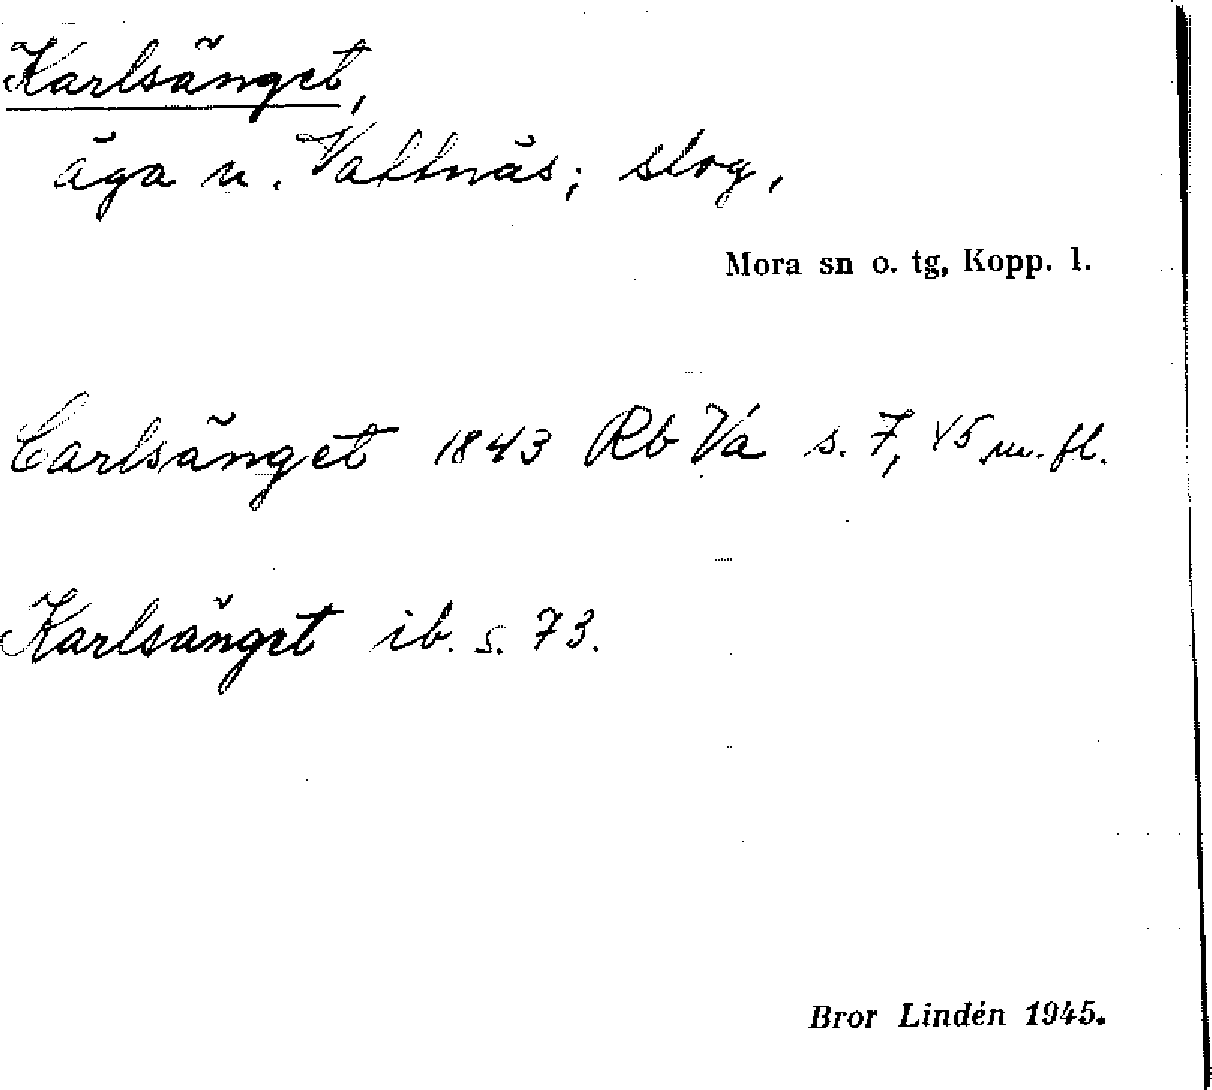 Karlsänget,
äga u. Vattnäs; skog,
Mora sn o. tg, Kopp. l.
Carlsänget 1843 Rb Vá s. 7, 45 m. fl.
Karlsänget ib. s. 73.
Bror Lindén 1945.